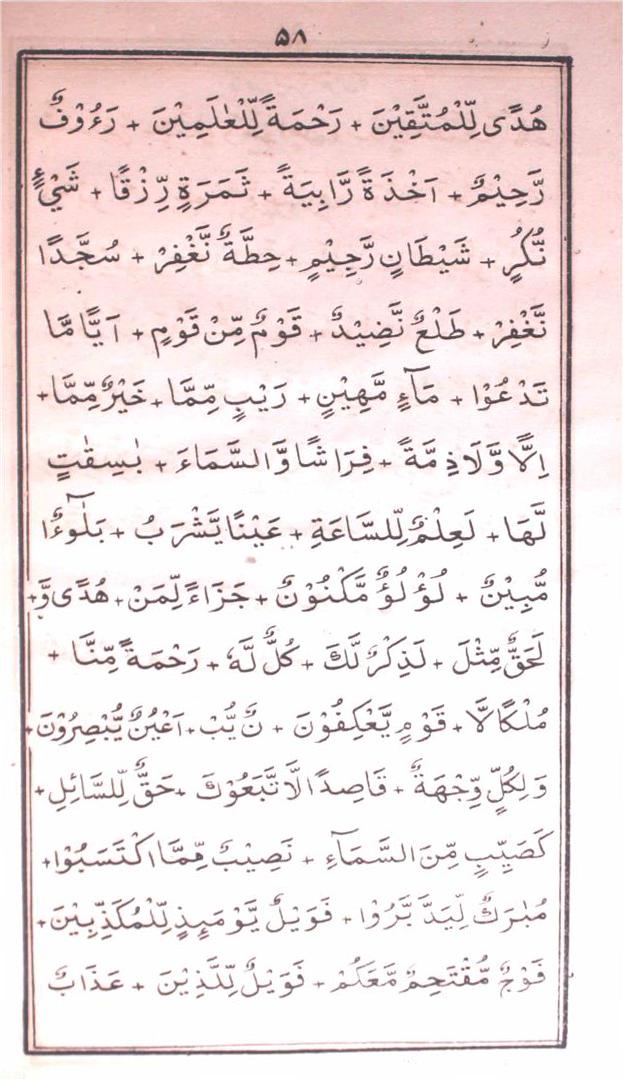 ۵۸
هُدًى لِّلْمُتَّقِيْنَ + رَحْمَةً لِّلْعٰلَمِيْنَ + رَءُوْفٌ
رَّحِيْمٌ + اَخْذَةً رَّابِيَةً + ثَمَرَةٍ رِّزْقًا + شَيْءٍ
نُّكُرٍ + شَيْطَانٍ رَّجِيْمٍ + حِطَّةٌ نَّغْفِرْ + سُجَّدًا
نَّغْفِرْ + طَلْعٌ نَّضِيْدٌ + قَوْمٌ مِّنْ قَوْمٍ + اَيًّا مَّا
تَدْعُوْا + مَآءٍ مَّهِيْنٍ + رَيْبٍ مِّمَّا + خَيْرٌ مِّمَّا +
اِلًّا وَّلَا ذِمَّةً + فِرَاشًا وَّالسَّمَاءَ + بٰسِقٰتٍ
لَّهَا + لَعِلْمٌ لِّلسَّاعَةِ + عَيْنًا يَّشْرَبُ + بَلٰٓوءٌا
مُّبِيْنٌ + لُؤْلُؤٌ مَّكْنُوْنٌ + جَزَاءً لِّمَنْ + هُدًى وَّ +
لَحَقٌّ مِّثْلَ + لَذِكْرٌ لَّكَ + كُلٌّ لَّهٗ + رَحْمَةً مِّنَّا +
مُلْكًا لَّا + قَوْمٍ يَّعْكِفُوْنَ + نٌ يُّبْ + اَعْيُنٌ يُّبْصِرُوْنَ +
وَلِكُلٍّ وِّجْهَةٌ + قَاصِدًا لَّاتَّبَعُوْكَ + حَقٌّ لِّلسَّائِلِ +
كَصَيِّبٍ مِّنَ السَّمَآءِ + نَصِيْبٌ مِّمَّا اكْتَسَبُوْا +
مُبٰرَكٌ لِّيَدَّبَّرُوْا + فَوَيْلٌ يَّوْمَئِذٍ لِّلْمُكَذِّبِيْنَ +
فَوْجٌ مُّقْتَحِمٌ مَّعَكُمْ + فَوَيْلٌ لِّلَّذِيْنَ + عَذَابٌ